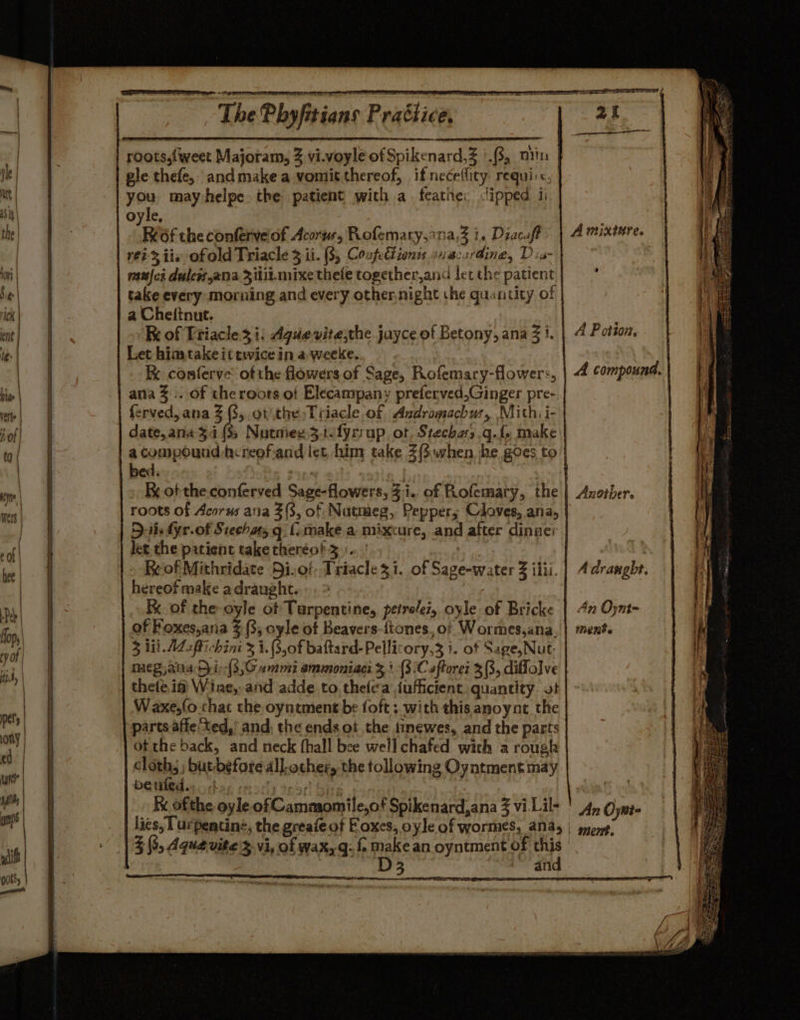 The Phyſitians Practice.
21
roots, ſweet Majoram, ℥ vi. voyle of Spikenard, ℥ i.ß, min
gle theſe, and make a vomit thereof, if neceſſity require,
you may helpe the patient with a feather dipped in
oyle.
℞ of the conſerve of Acorus, Roſemary, ana, ℥ i. Diacaſt
rei ʒ ii. of old Triacle ʒ ii.ß, Confectionis anacardinæ, Dia-
muſci dulcis, ana ʒ iiii. mixe theſe together, and let the patient
take every morning and every other night the quantity of
a Cheſtnut.
A mixture.
℞ of Triacle ʒ i. Aquævitæ, the juyce of Betony, ana ℥ i.
Let him take it twice in a weeke.
A Potion.
℞ conſerve of the flowers of Sage, Roſemary-flowers,
ana ℥ of the roots of Elecampany preſerved, Ginger pre-
ſerved, ana ℥ ß, of the Triacle of Andromachus, Mithri-
date, ana ʒ i ß, Nutmeg ʒ i. ſyrrup of Stechas, q.ſ. make
a compound hereof and let him take ʒ ß when he goes to
bed.
A compound.
℞ of the conſerved Sage-flowers, ℥ i. of Roſemary, the
roots of Acorus ana ℥ ß, of Nutmeg, Pepper, Cloves, ana,
ſyr. of Stechas, q. ſ. make a mixture, and after dinner
let the patient take thereof ʒ
Another.
℞ of Mithridate ℈i. of Triacle ʒ i. of Sage-water ℥ iiii.
hereof make a draught.
A draught.
℞ of the oyle of Turpentine, petrolei, oyle of Bricke
of Foxes, ana ℥ ß, oyle of Beavers-ſtones, of Wormes, ana,
ʒ iii. Maſtichini ʒ i.ß, of baſtard-Pellitory, ʒ i. of Sage, Nut-
meg, ana ℈i.ß, Gummi ammoniaci ʒ i ß. Caſtorei ʒ ß, diſſolve
theſe in Wine, and adde to theſe a ſufficient quantity of
Waxe, ſo that the oyntment be ſoft; with this anoynt the
parts affected, and the ends of the ſinewes, and the parts
of the back, and neck ſhall bee well chafed with a rough
cloth, but before all other, the following Oyntment may
be uſed.
An Oynt-
ment.
℞ of the oyle of Cammomile, of Spikenard, ana ℥ vi Lil-
lies, Turpentine, the greaſe of Foxes, oyle of wormes, ana,
℥ ß, Aquævitæ ʒ vi, of wax, q. ſ. make an oyntment of this
An Oynt-
ment.
D3
and